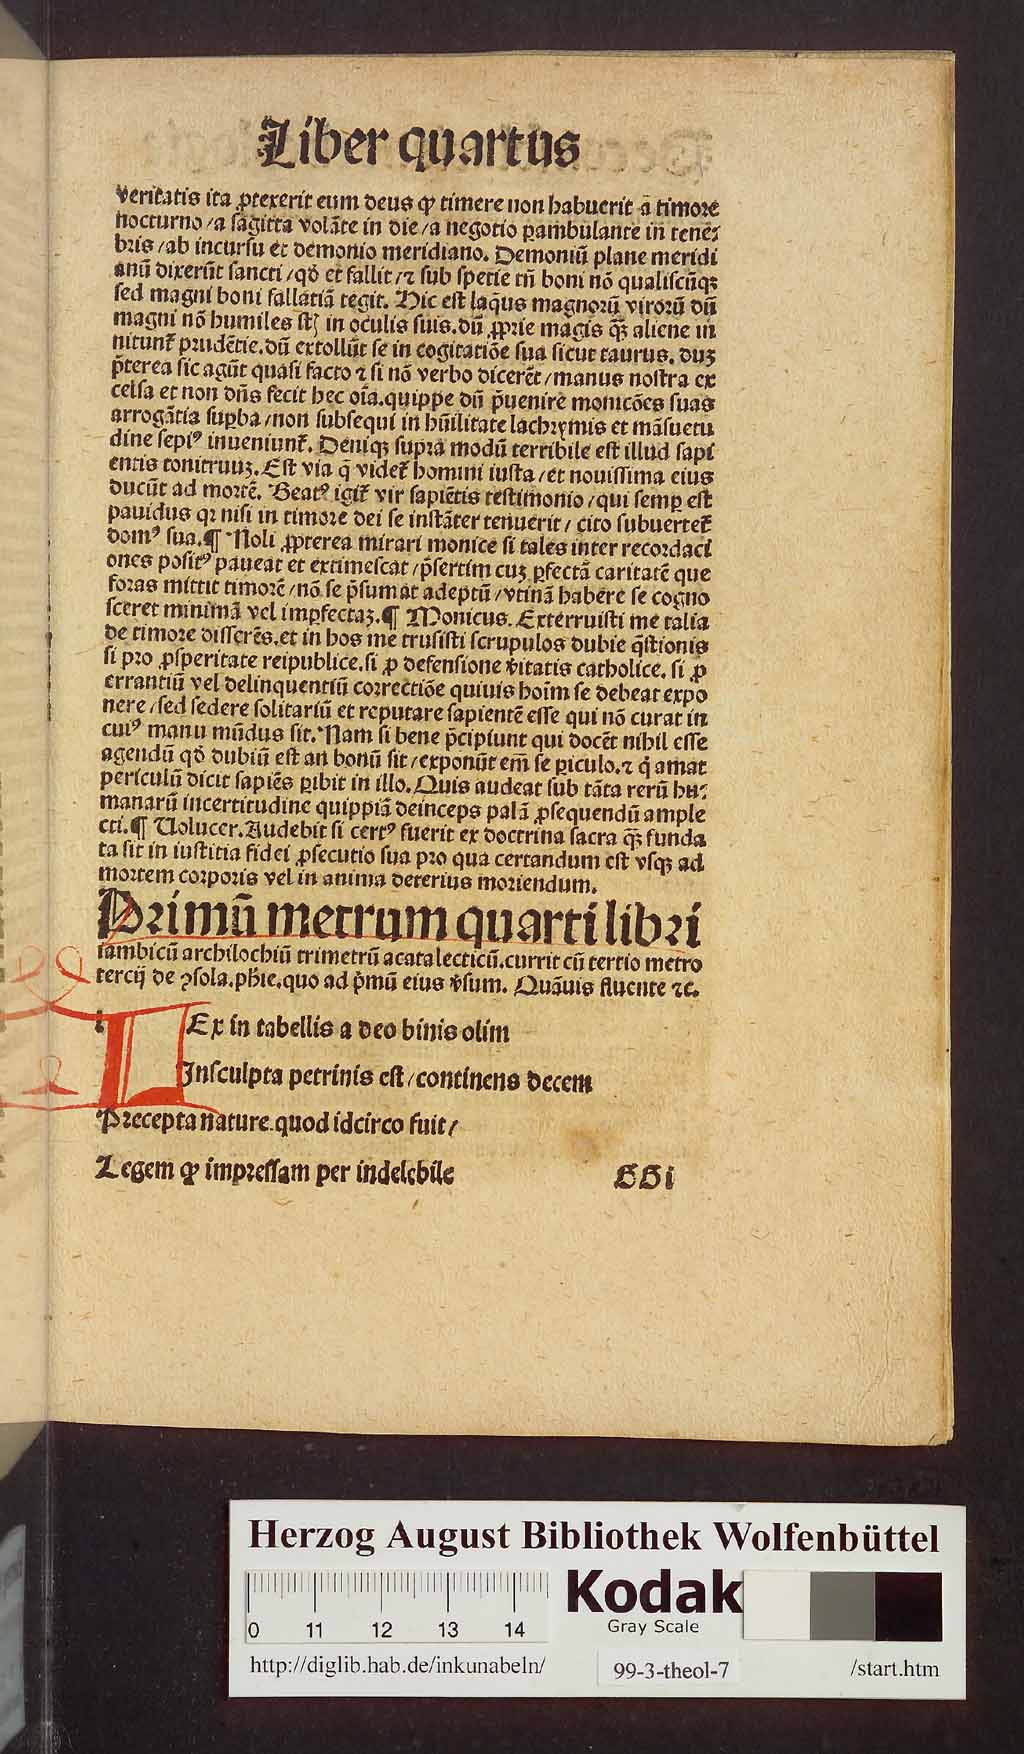 Liber quartus
veritatis ita ꝓtexerit eum deus ꝙ timere non habuerit a timore
nocturno / a sagitta volāte in die / a negotio ꝑambulante in tene⸗
bris / ab incursu et demonio meridiano. Demoniū plane meridi
anū dixerūt sancti / qď et fallit / ⁊ sub spetie tn̄ boni nō qualiscūqꝫ
sed magni boni fallatiā tegit. Hic est laq̄us magnorū virorū dū
magni nō humiles st̄ in oculis suis. dū ꝓprie magis q̄ꝫ aliene in
nitunt̄ prudētie. dū extollūt se in cogitatiōe sua sicut taurus. duꝫ
p̄terea sic agūt quasi facto ⁊ si nō verbo dicerēt / manus nostra ex
celsa et non dn̄s fecit hec oīa. quippe dū p̄uenire monicōes suas
arrogātia suꝑba / non subsequi in hūilitate lachrymis et māsuetu
dine sepiꝰ inueniunt̄. Deniqꝫ supra modū terribile est illud sapi
entis tonitruuꝫ. Est via q̄ videt̄ homini iusta / et nouissima eius
ducūt ad mortē. Beatꝰ igit̄ vir sapiētis testimonio / qui semꝑ est
pauidus qꝛ nisi in timore dei se instāter tenuerit / cito subuertet̄
domꝰ sua. ¶ Noli ꝓpterea mirari monice si tales inter recordaci
ones positꝰ paueat et extimescat / p̄sertim cuꝫ ꝑfectā caritatē que
foras mittit timorē / nō se p̄sumat adeptū / vtinā habere se cogno
sceret minimā vel imꝑfectaꝫ. ¶ Monicus. Exterruisti me talia
de timore disserēs. et in hos me trusisti scrupulos dubie q̄stionis
si pro ꝓsperitate reipublice. si ꝓ defensione v̄itatis catholice. si ꝓ
errantiū vel delinquentiū correctiōe quiuis hoīm se debeat expo
nere / sed sedere solitariū et reputare sapientē esse qui nō curat in
cuiꝰ manu mūdus sit. Nam si bene p̄cipiunt qui docēt nihil esse
agendū qď dubiū est an bonū sit / exponūt em̄ se ꝑiculo. ⁊ q̇ amat
periculū dicit sapiēs ꝑibit in illo. Quis audeat sub tāta rerū hu⸗
manarū incertitudine quippiā deinceps palā ꝓsequendū ample
cti. ¶ Uolucer. Audebit si certꝰ fuerit ex doctrina sacra q̄ꝫ funda
ta sit in iustitia fidei ꝓsecutio sua pro qua certandum est vsqꝫ ad
mortem corporis vel in anima deterius moriendum.
Primū metrum quarti libri
iambicū archilochiū trimetrū acatalecticū. currit cū tertio metro
tercij de ꝯsola. ph̄ie. quo ad p̄mū eius v̄sum. Quāuis fluente ⁊c.
LEx in tabellis a deo binis olim
Insculpta petrinis est / continens decem
Precepta nature. quod idcirco fuit /
Legem ꝙ impressam per indelebile
GGi
Herzog August Bibliothek Wolfenbüttel
0 11 12 13 14
Kodak
Gray Scale
http://diglib.hab.de/inkunabeln/ 99-3-theol-7 /start.htm